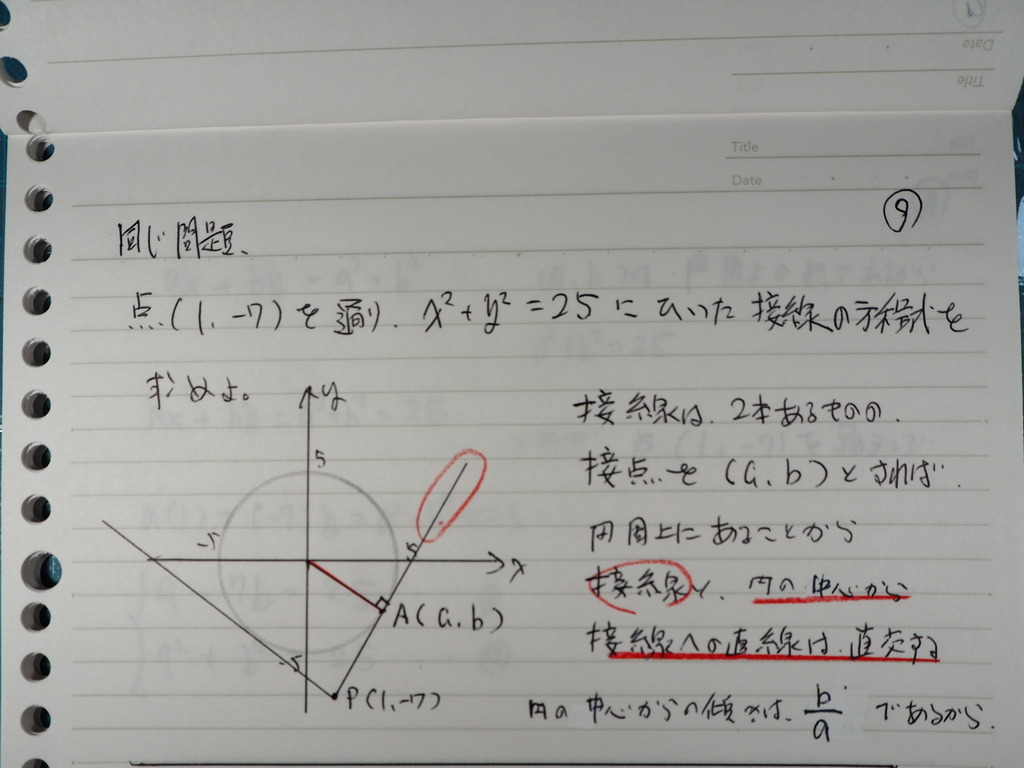 Title
Date
Title
Date
⑨
同じ問題、
点(1, -7)を通り、x²+y²=25にひいた接線の方程式を
求めよ。
接線は、2本あるものの、
接点を(a, b)とすれば、
円周上にあることから
接線と、円の中心から
接線への直線は、直交する
円の中心からの傾きは、b/a であるから、
y
5
-5
5
x
A(a, b)
-5
P(1, -7)